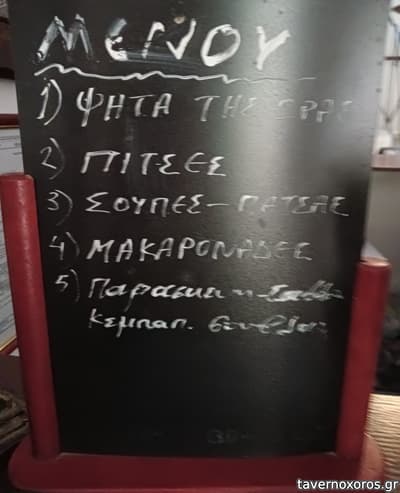 ΜΕΝΟΥ
1) ΨΗΤΑ ΤΗΣ ΩΡΑΣ
2) ΠΙΤΣΕΣ
3) ΣΟΥΠΕΣ - ΠΑΤΣΑΣ
4) ΜΑΚΑΡΟΝΑΔΕΣ
5) Παρασκευη
Κεμπαπ.
tavernoxoros.gr